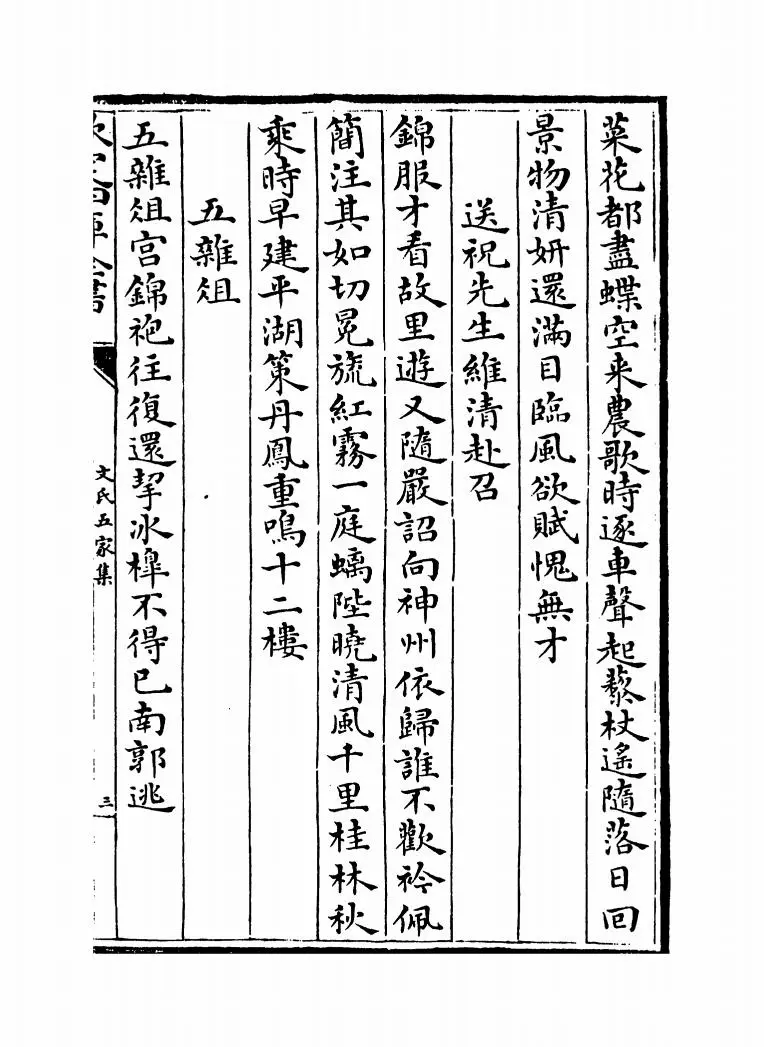 菜花都盡蝶空来農歌時逐車聲起藜杖遙隨落日回
景物清妍還滿目臨風欲賦愧無才
送祝先生維清赴召
錦服才看故里遊又隨嚴詔向神州依歸誰不歡衿佩
簡注其如切冕旒紅霧一庭螭陛曉清風千里桂林秋
乘時早建平湖策丹鳳重鳴十二樓
五雜俎
五雜俎宫錦袍往復還挈冰橰不得已南郭逃
文氏五家集
三